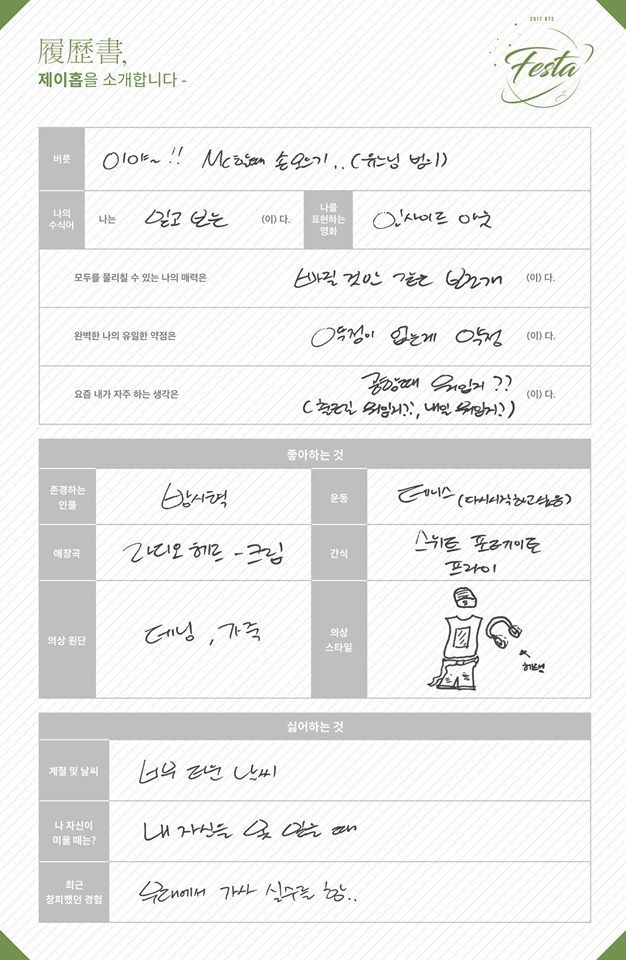 2017 BTS
Festa
履歷書,
제이홉을 소개합니다 -
버릇
이야~!! Mc할때 손모으기.. (유느님 빙의)
나의
수식어
나는 믿고 보는 (이) 다.
나를
표현하는
영화
인사이드 아웃
모두를 물리칠 수 있는 나의 매력은 빠질 것만 같은 보조개 (이) 다.
완벽한 나의 유일한 약점은 약점이 없는게 약점 (이) 다.
요즘 내가 자주 하는 생각은 공항때 뭐입지?? (이) 다.
(출근길 뭐입지?, 내일 뭐입지?)
좋아하는 것
존경하는
인물
방시혁
운동
테니스 (다시시작하고싶음)
애창곡
라디오 헤드 - 크립
간식
스위트 포테이토
프라이
의상 원단
데님, 가죽
의상
스타일
헤드셋
싫어하는 것
계절 및 날씨
너무 더운 날씨
나 자신이
미울 때는?
내 자신을 못 믿을 때
최근
창피했던 경험
무대에서 가사 실수를 함..